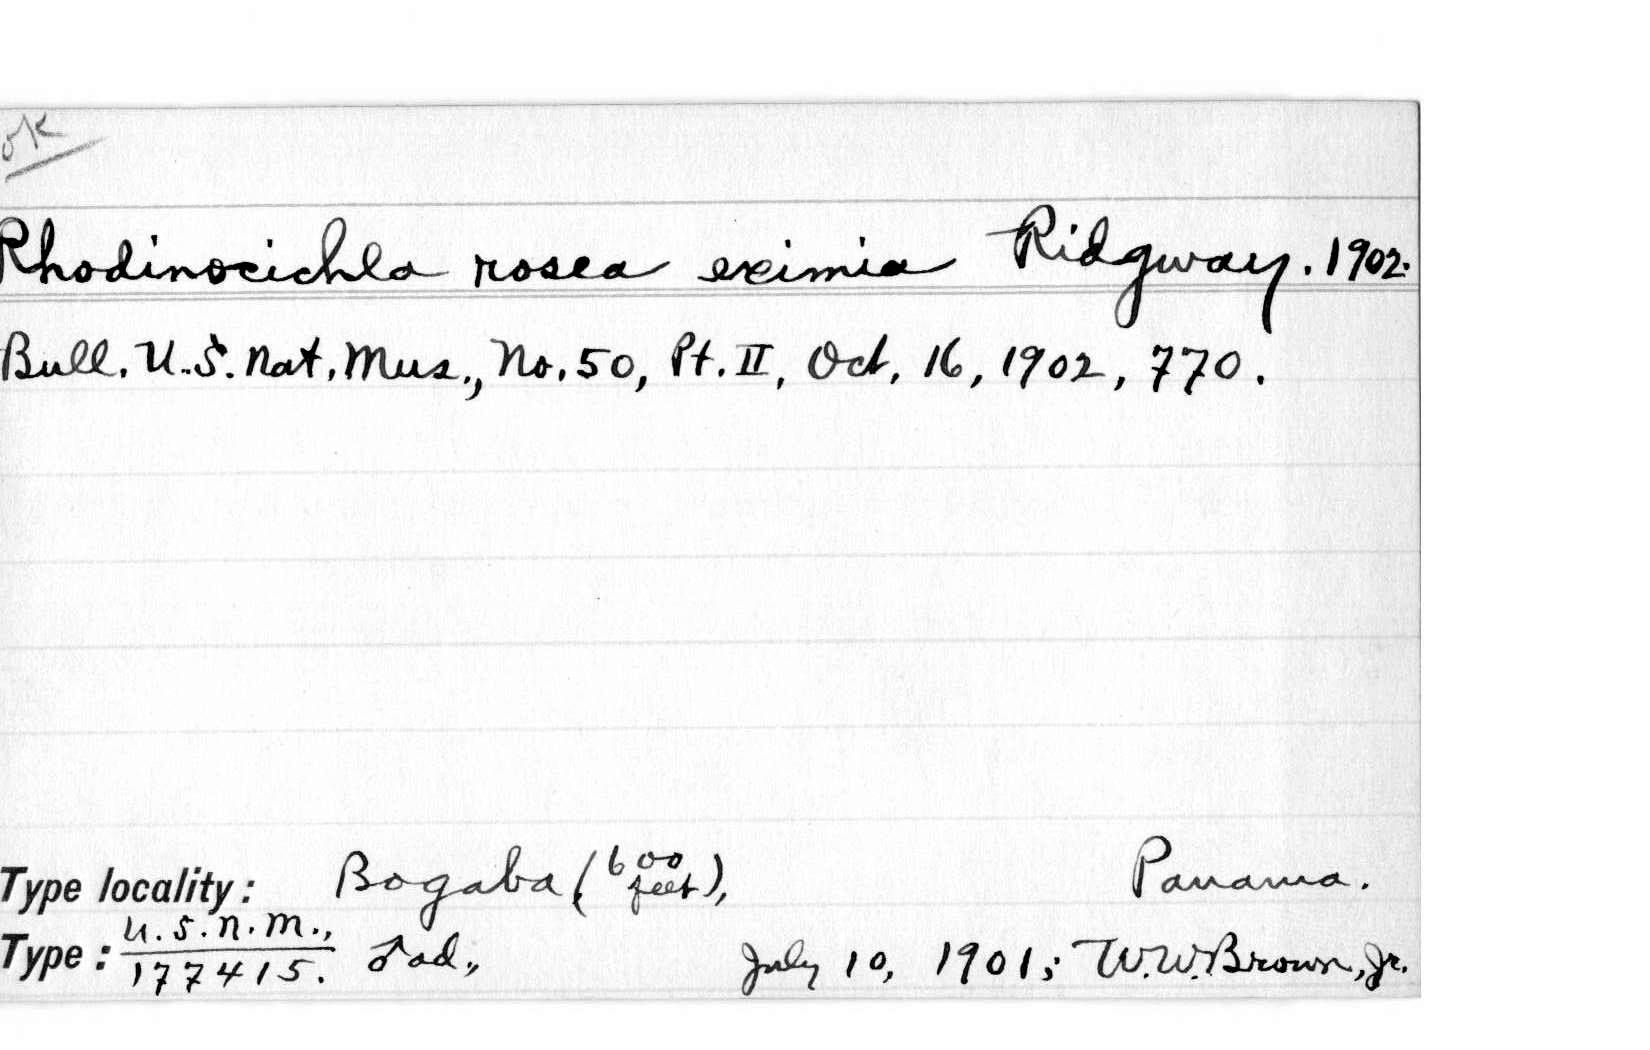 ok
Rhodinocichla rosea eximia Ridgway. 1902.
Bull. U.S. Nat. Mus., No. 50, Pt. II, Oct. 16, 1902, 770.
Type locality: Bogaba (600 feet), Panama.
Type: U.S.N.M., 177415. ♂ ad., July 10, 1901; W.W. Brown, Jr.